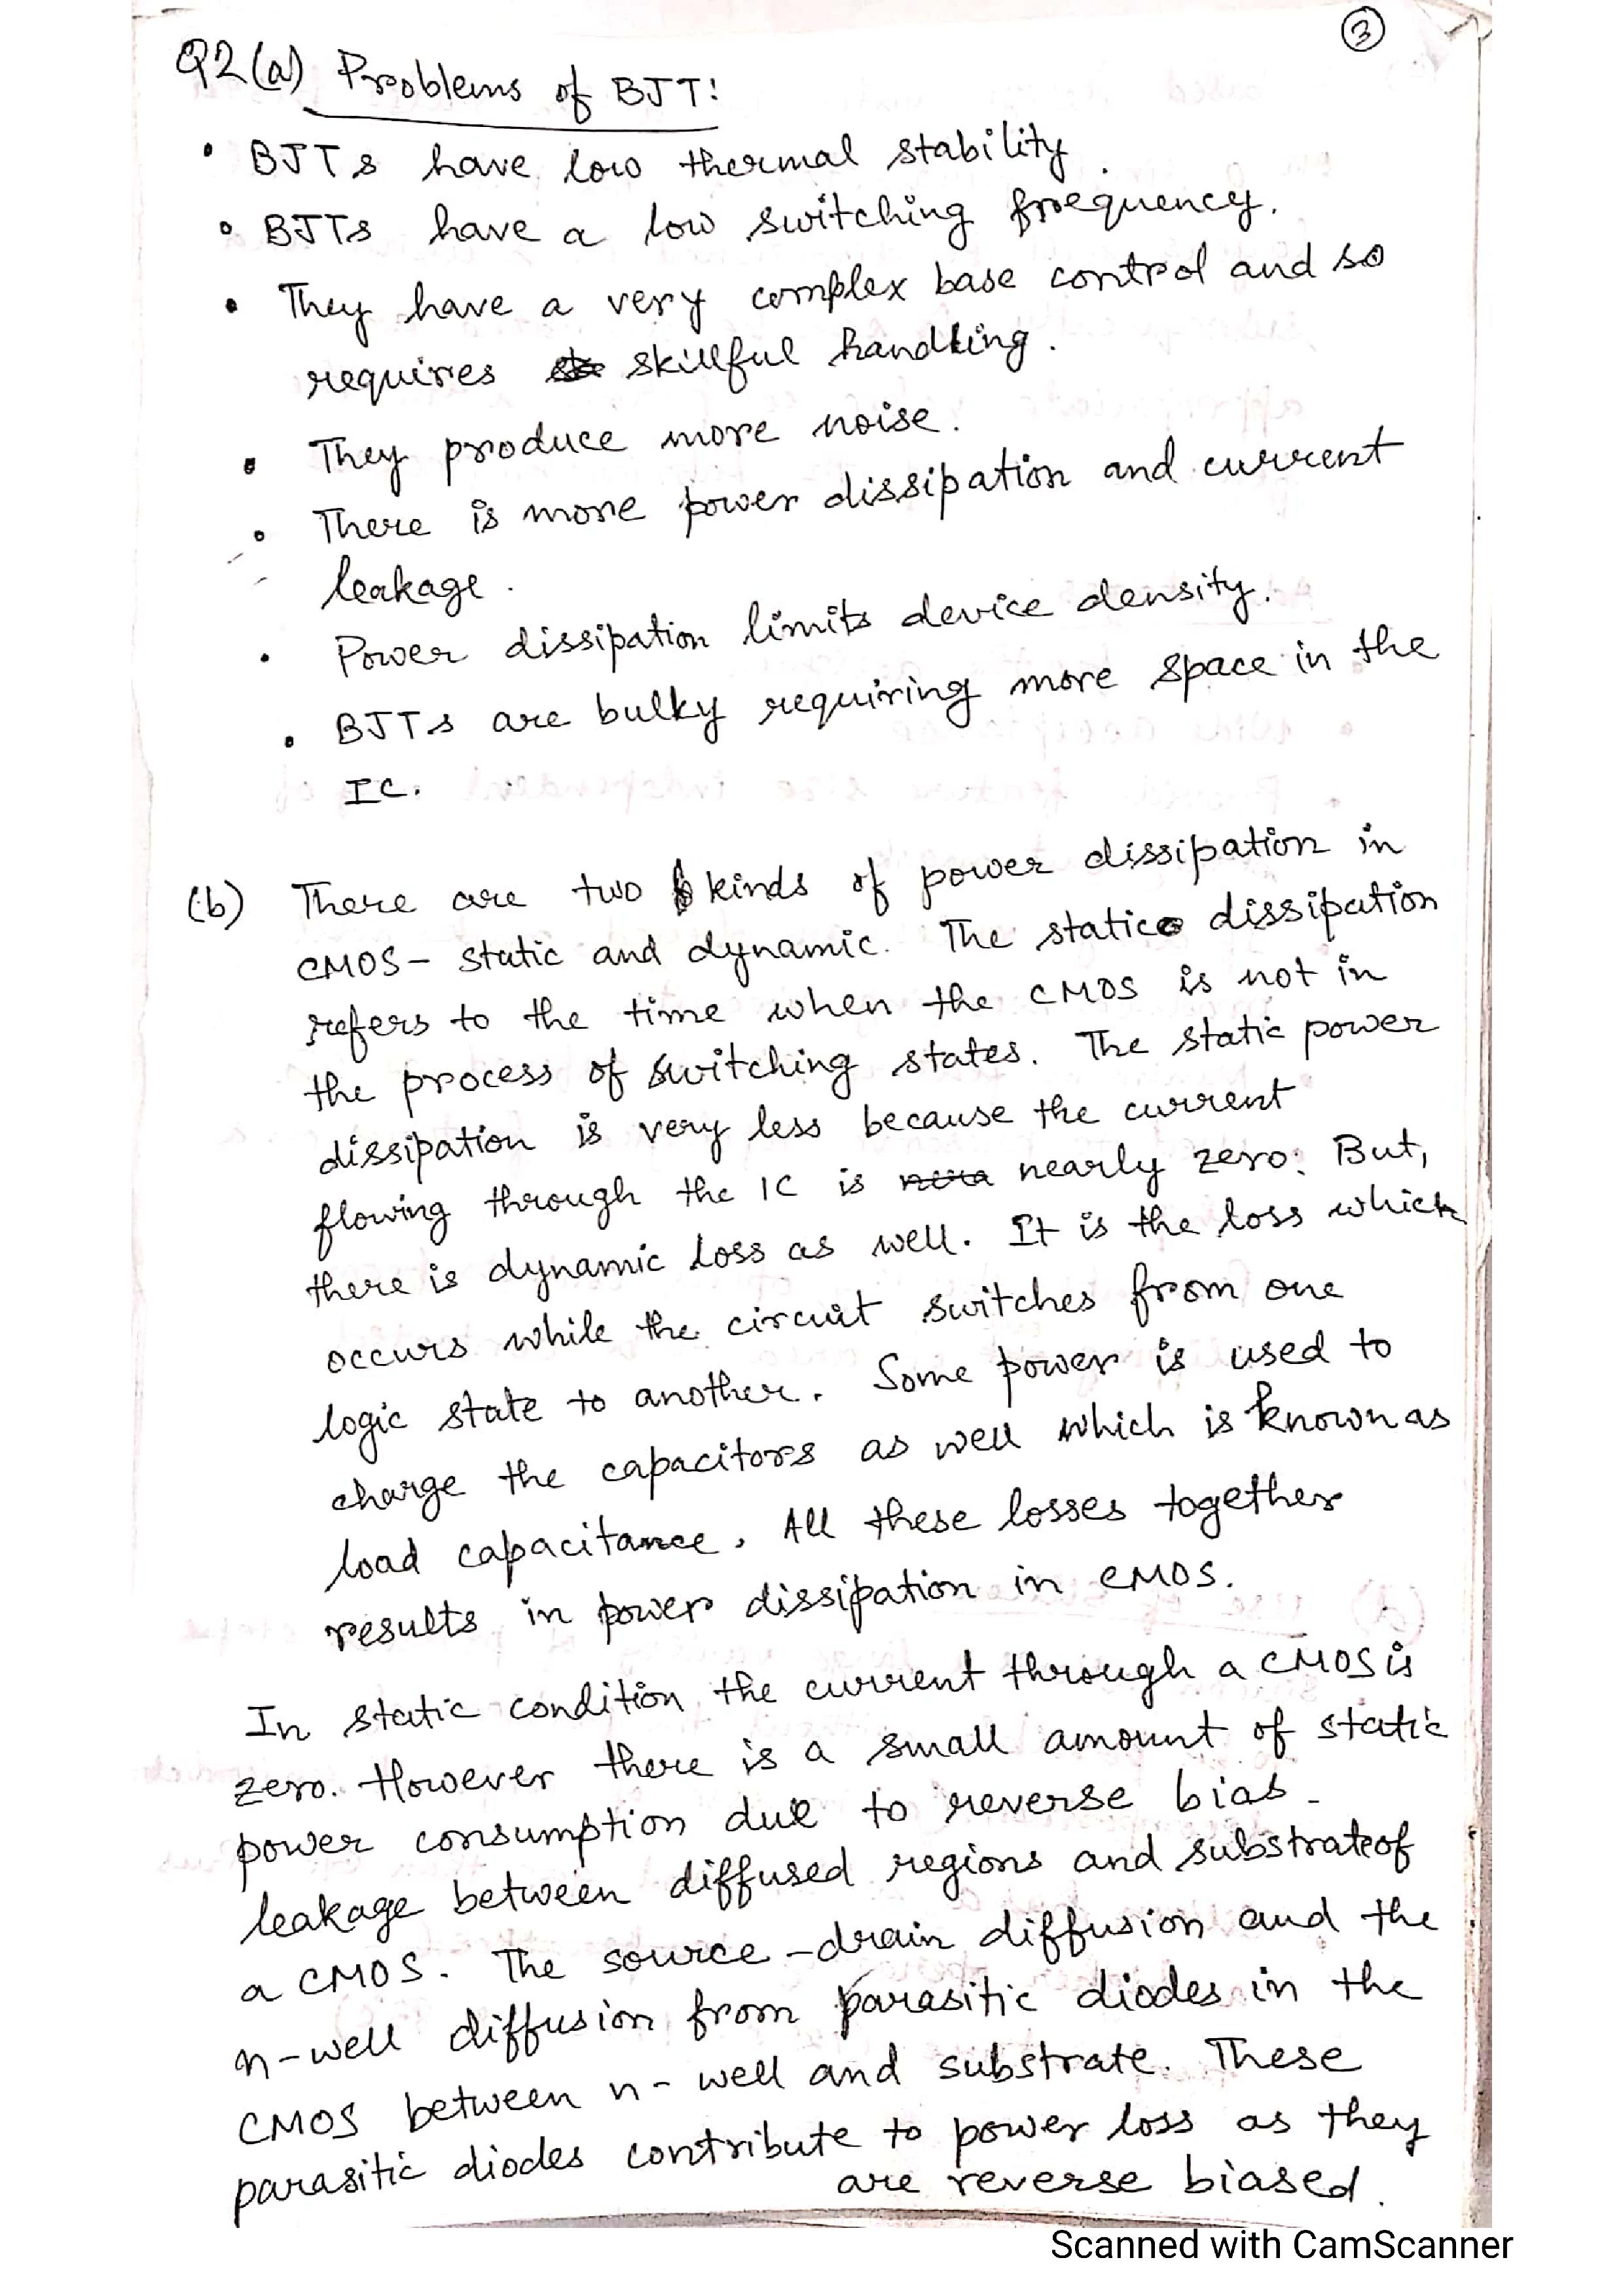 3
Q2(a) Problems of BJT:
• BJTs have low thermal stability.
• BJTs have a low switching frequency.
• They have a very complex base control and so
requires skillful handling.
• They produce more noise.
• There is more power dissipation and current
leakage.
• Power dissipation limits device density.
• BJTs are bulky requiring more space in the
IC.
(b) There are two kinds of power dissipation in
CMOS - static and dynamic. The static dissipation
refers to the time when the CMOS is not in
the process of switching states. The static power
dissipation is very less because the current
flowing through the IC is nearly zero. But,
there is dynamic loss as well. It is the loss which
occurs while the circuit switches from one
logic state to another. Some power is used to
charge the capacitors as well which is known as
load capacitance. All these losses together
results in power dissipation in CMOS.
In static condition the current through a CMOS is
zero. However there is a small amount of static
power consumption due to reverse bias -
leakage between diffused regions and substrate of
a CMOS. The source-drain diffusion and the
n-well diffusion from parasitic diodes in the
CMOS between n-well and substrate. These
parasitic diodes contribute to power loss as they
are reverse biased.
Scanned with CamScanner